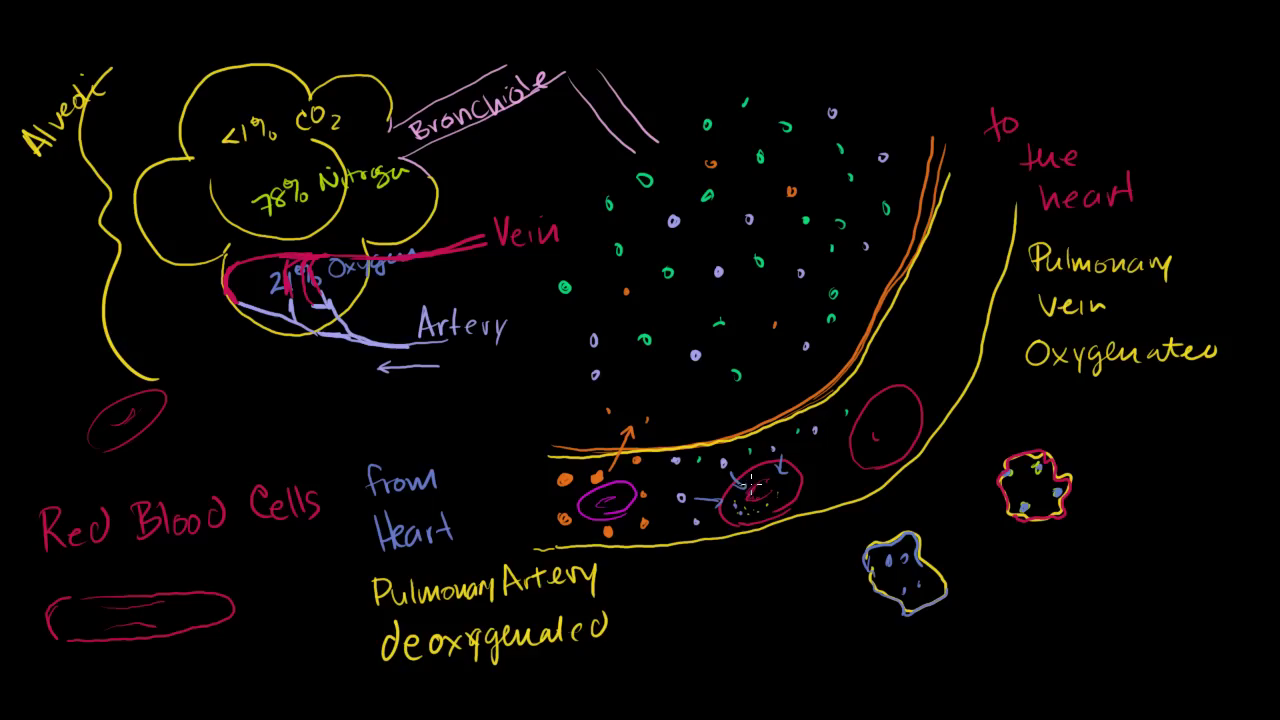 Alveoli
<1% CO2
78% Nitrogen
21% Oxygen
Bronchiole
Vein
Artery
to
the
heart
Pulmonary
Vein
Oxygenated
Red Blood Cells
from
Heart
Pulmonary Artery
deoxygenated